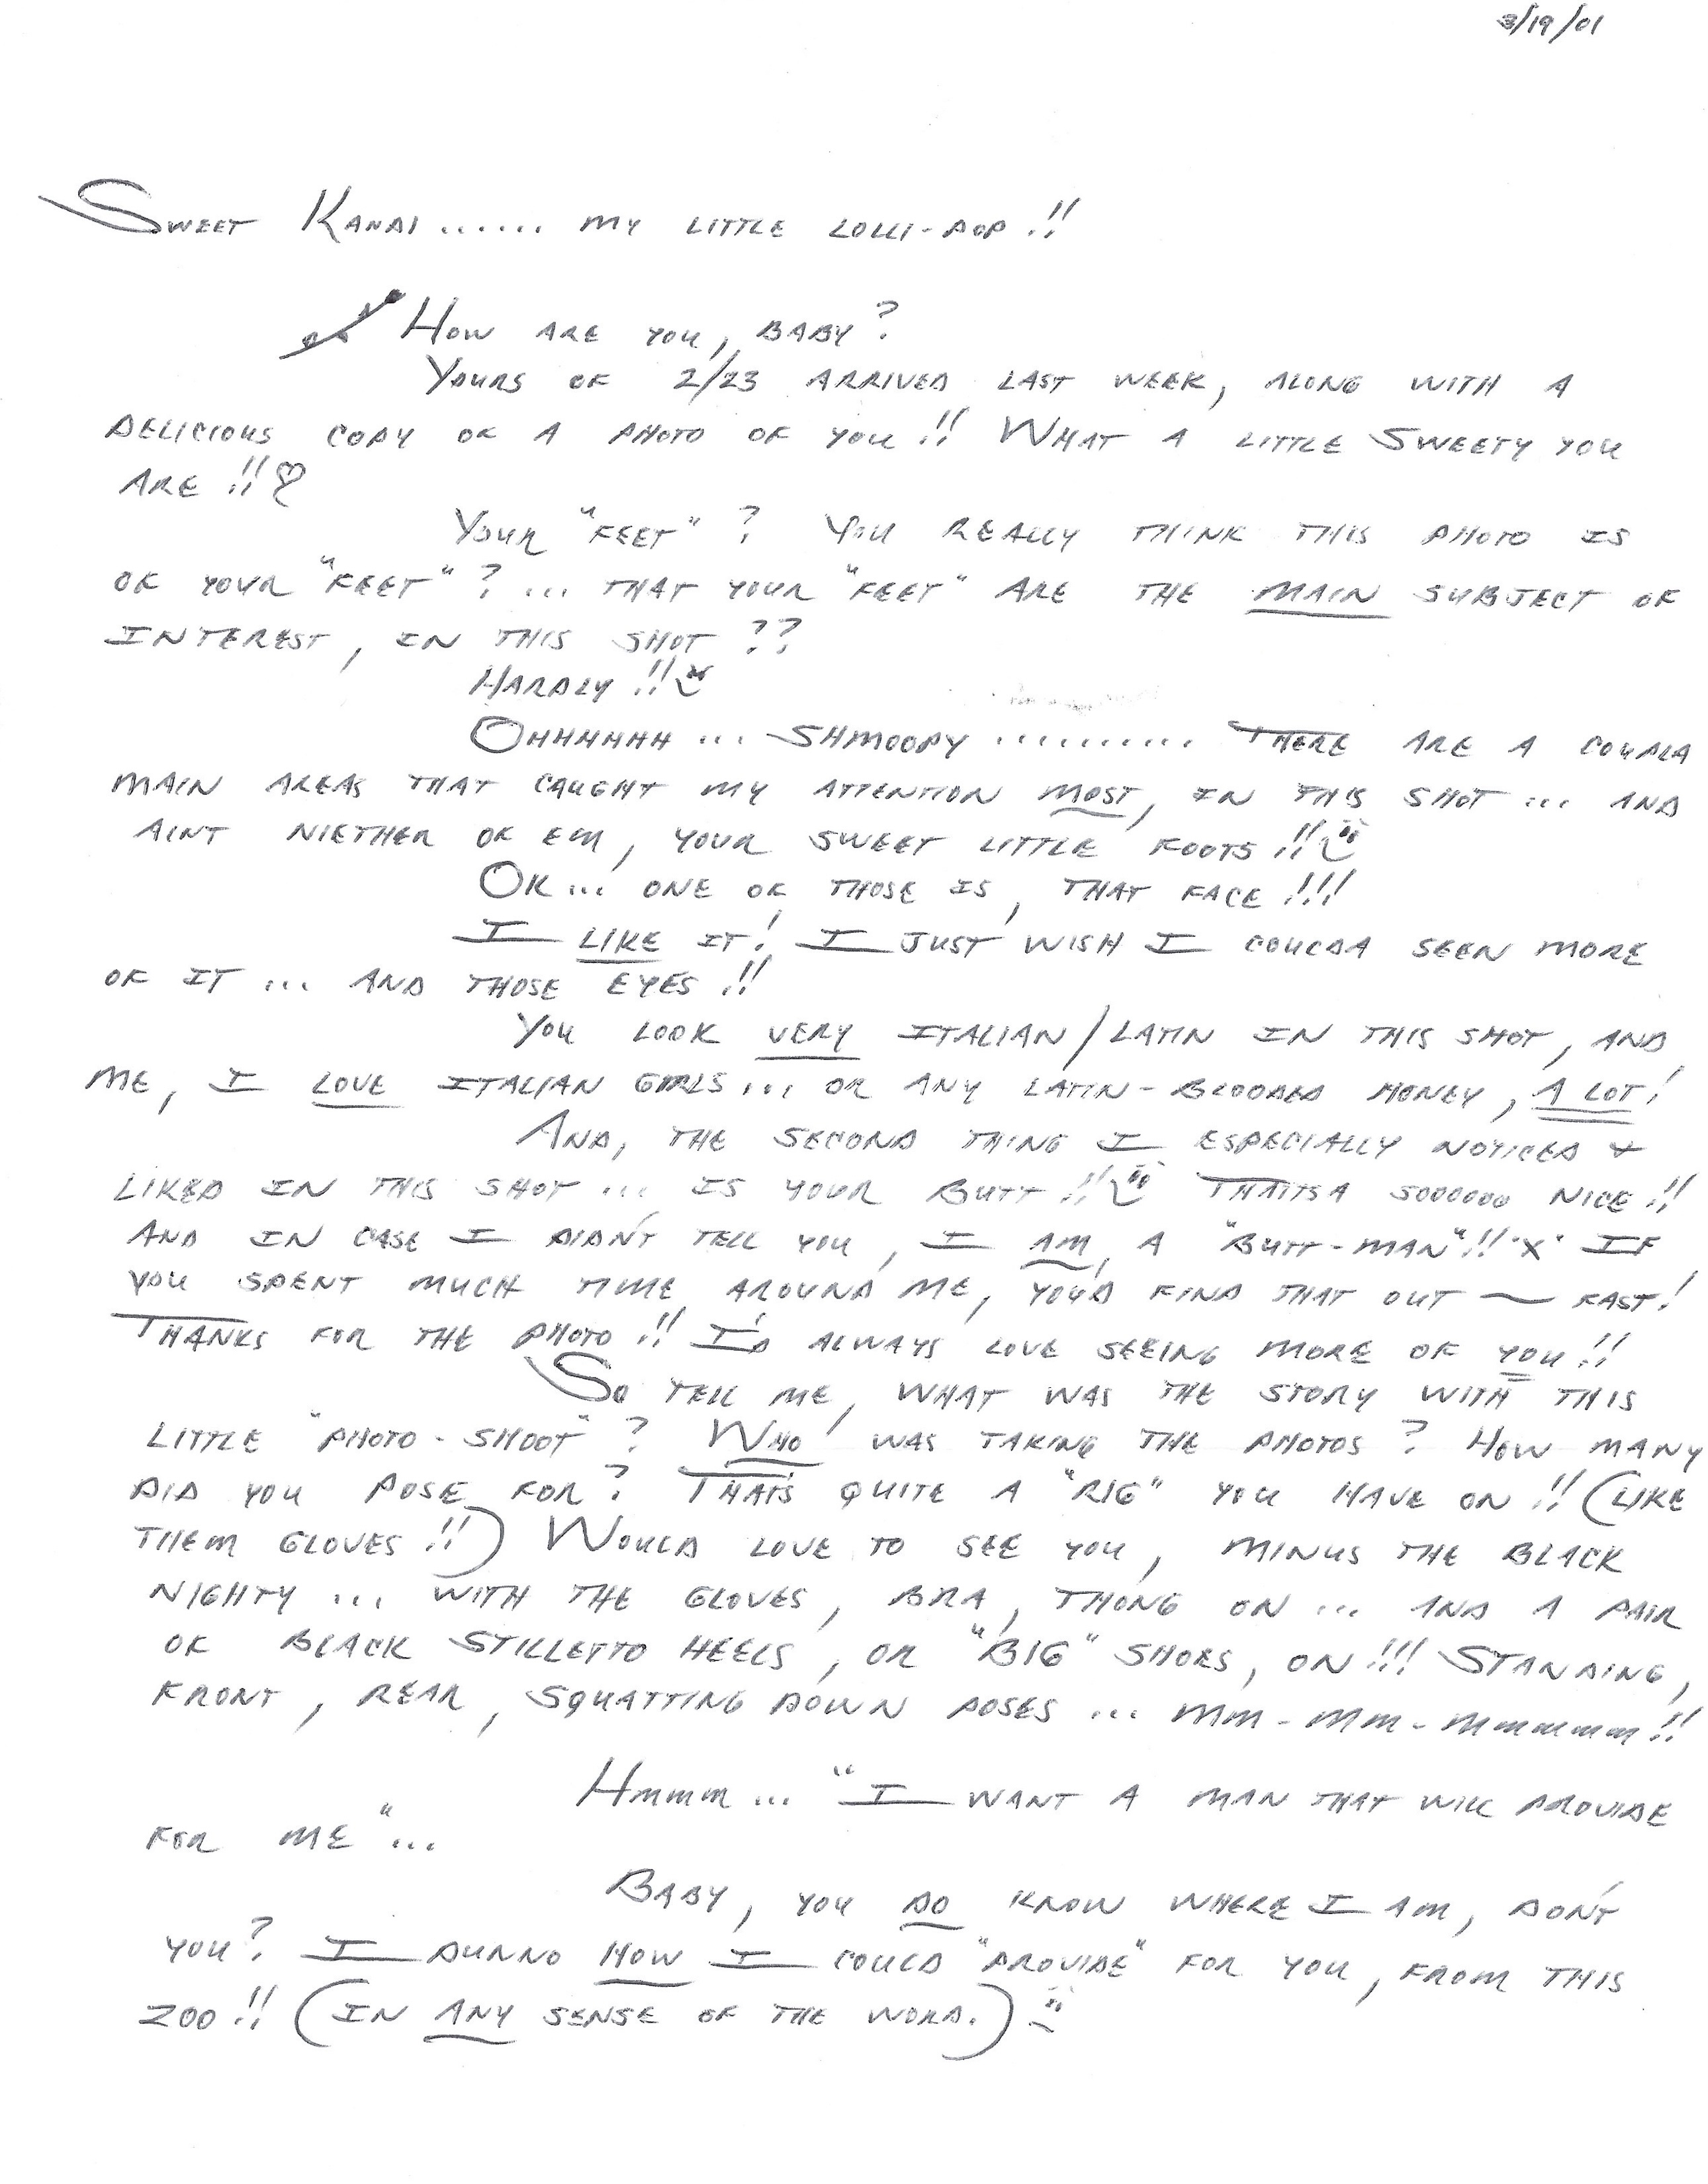 3/19/01
Sweet Kandi...... my little lolli-pop!!
How are you, baby?
Yours of 2/23 arrived last week, along with a
delicious copy of a photo of you!! What a little sweety you
are!!
Your "feet"? You really think this photo is
of your "feet"?... that your "feet" are the main subject of
interest, in this shot??
Hardly!!
Ohhhhhh... Shmoopy.......... There are a coupla
main areas that caught my attention most, in this shot... and
aint niether of em, your sweet little foots!!
Ok... one of those is, that face!!!
I like it! I just wish I coulda seen more
of it... and those eyes!!
You look very Italian/Latin in this shot, and
me, I love Italian girls... or any Latin-blooded honey, a lot!
And, the second thing I especially noticed +
liked in this shot... is your butt!! Thatsa soooooo nice!!
And in case I didn't tell you, I am, a "butt-man"!! 'X' If
you spent much time around me, you'd find that out — fast!
Thanks for the photo!! I'd always love seeing more of you!!
So tell me, what was the story with this
little "photo-shoot"? Who was taking the photos? How many
did you pose for? That's quite a "rig" you have on!! (Like
them gloves!!) Would love to see you, minus the black
nighty... with the gloves, bra, thong on... and a pair
of black stilletto heels, or "big" shoes, on!!! Standing,
front, rear, squatting down poses... mm-mm-mmmmmm!!
Hmmm... "I want a man that will provide
for me"...
Baby, you do know where I am, don't
you? I dunno how I could "provide" for you, from this
zoo!! (In any sense of the word.)